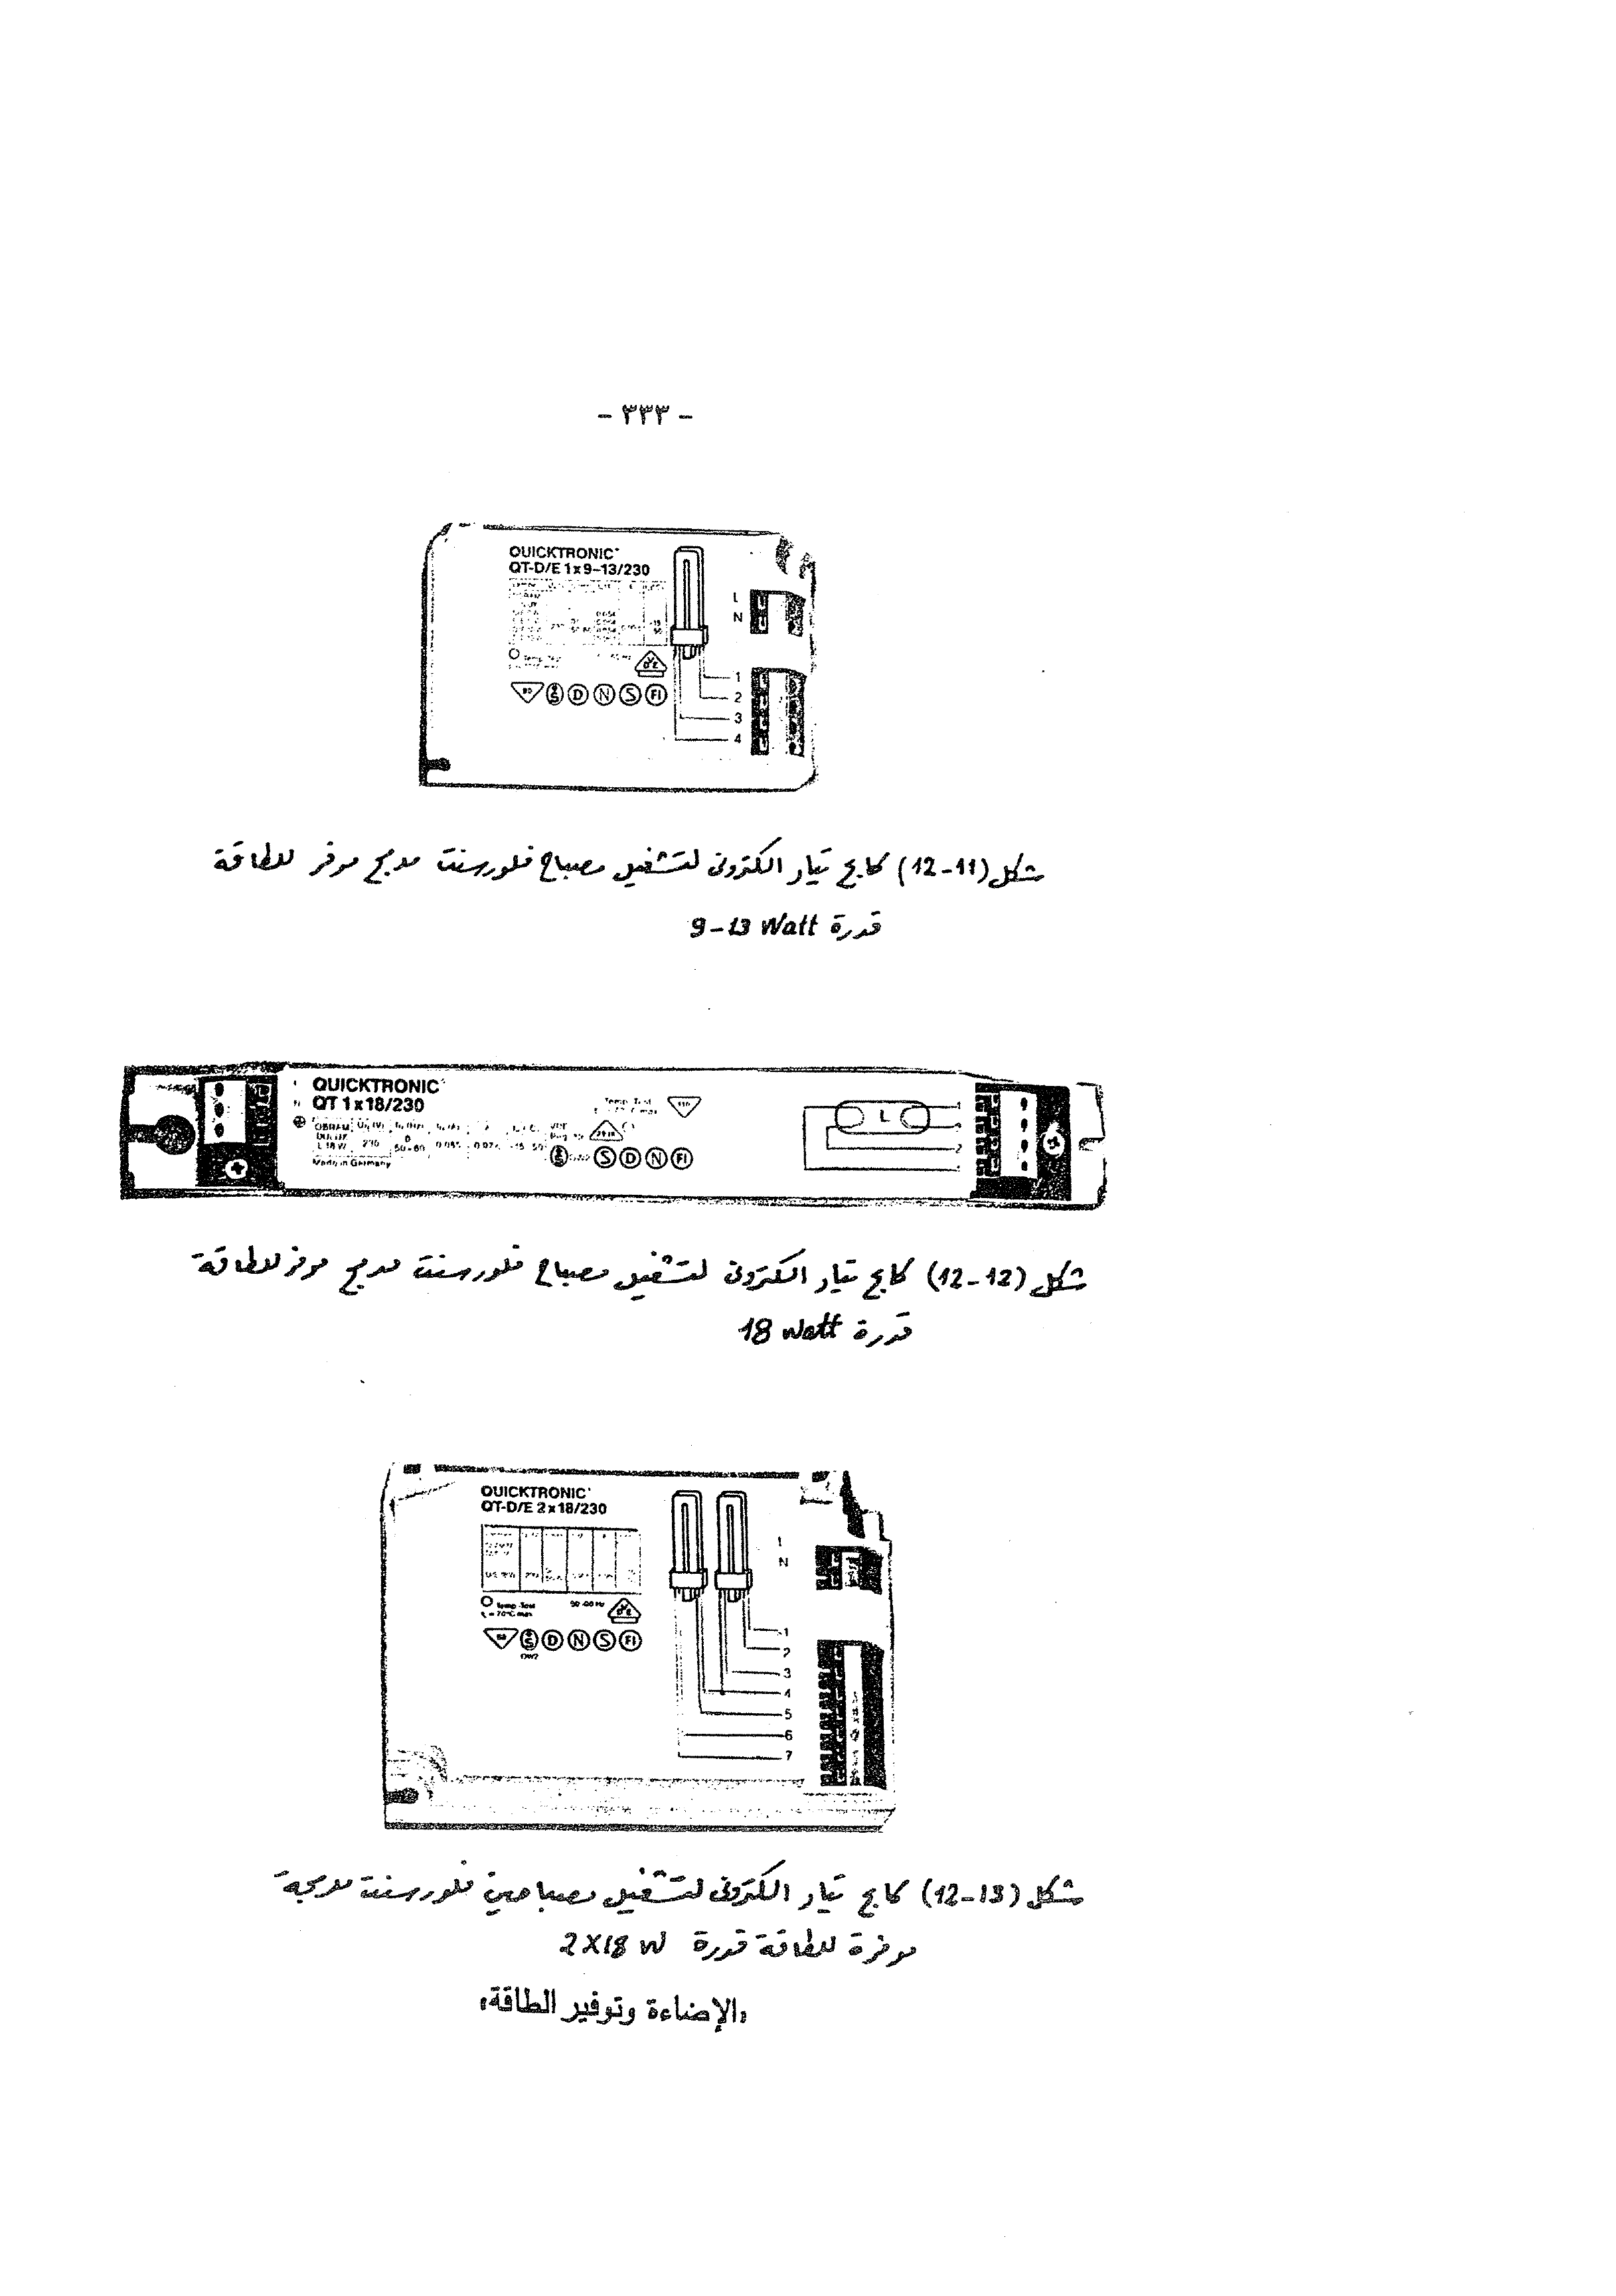 - ٣٣٣ -
QUICKTRONIC
QT-D/E 1x9-13/230
L
N
Temp. Test
D N S FI
1
2
3
4
شكل (12-11) كابح تيار الكترونى لتشغيل مصباح فلورسنت مدمج موفر للطاقة
قدرة 9-13 Watt
QUICKTRONIC
QT 1x18/230
Temp. Test
OSRAM
L 18 W 230 50-60
Made in Germany
S D N FI
L
2
شكل (12-12) كابح تيار الكترونى لتشغيل مصباح فلورسنت مدمج موفر للطاقة
قدرة 18 Watt
QUICKTRONIC
QT-D/E 2x18/230
N
Temp. Test
70°C max
D N S FI
1
2
3
4
5
6
7
شكل (12-13) كابح تيار الكترونى لتشغيل مصباحين فلورسنت مدمجة
موفرة للطاقة قدرة 2X18 W
«الإضاءة وتوفير الطاقة»